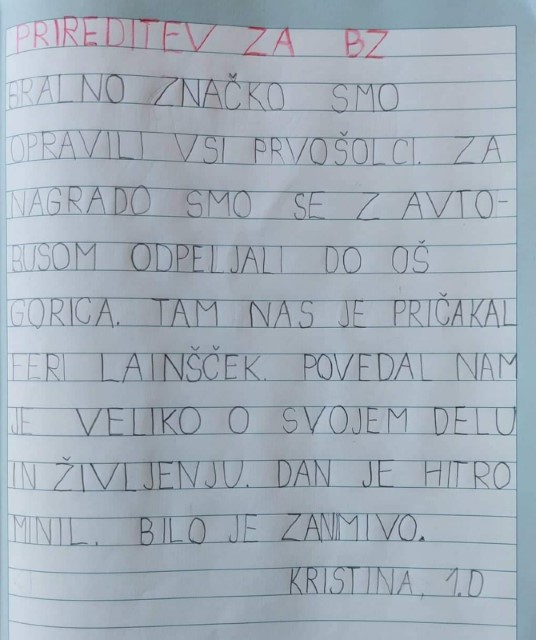 PRIREDITEV ZA BZ
BRALNO ZNAČKO SMO
OPRAVILI VSI PRVOŠOLCI. ZA
NAGRADO SMO SE Z AVTO-
BUSOM ODPELJALI DO OŠ
GORICA. TAM NAS JE PRIČAKAL
FERI LAINŠČEK. POVEDAL NAM
JE VELIKO O SVOJEM DELU
IN ŽIVLJENJU. DAN JE HITRO
MINIL. BILO JE ZANIMIVO.
KRISTINA, 1.D